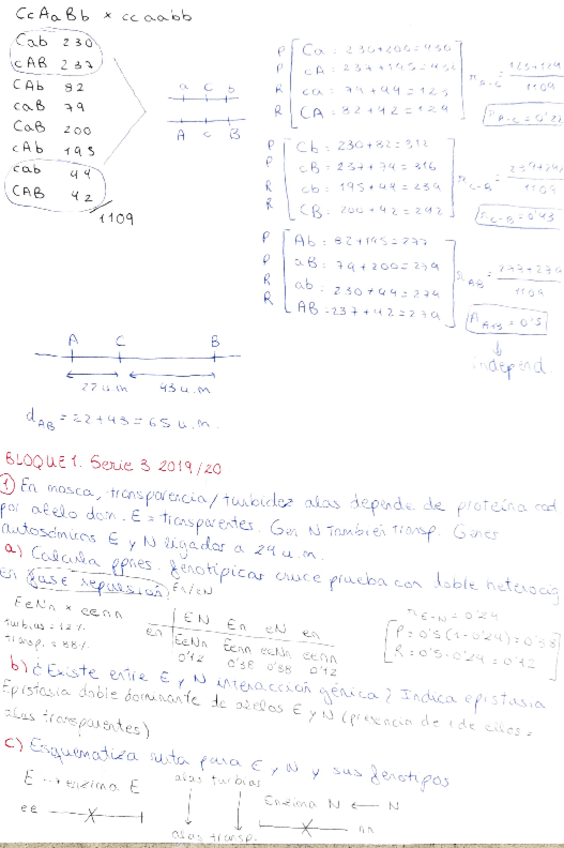 CcAaBb x ccaabb
Cab 230
cAB 237
CAb 82
caB 79
CaB 200
cAb 195
cab 44
CAB 42
1109
a C b
A c B
P Ca: 230+200=430
P cA: 237+195=432
R ca: 79+44=123
R CA: 82+42=124
r A-C = 123+124
1109
r A-C = 0'22
P Cb: 230+82=312
P cB: 237+79=316
R cb: 195+44=239
R CB: 200+42=242
r C-B = 239+242
1109
r C-B = 0'43
P Ab: 82+195=277
P aB: 79+200=279
R ab: 230+44=274
R AB = 237+42=279
r AB = 
1109
independ.
A C B
22 u.m 43 u.m
dAB = 22+43 = 65 u.m.
BLOQUE 1. Serie 3 2019/20
① En mosca, transparencia/turbidez alas depende de proteína cod
por alelo dom. E = transparentes. Gen N también transp. Genes
autosómicos E y N ligados a 24 u.m.
a) Calcula ppnes. genotípicas cruce prueba con doble heterocig
en fase repulsión. En/eN
EeNn x eenn
turbias = 12%
transp. = 88%
EN En eN en
en EeNn Eenn eeNn eenn
0'12 0'38 0'38 0'12
r E-N = 0'24
P = 0'5 (1-0'24) = 0'38
R = 0'5·0'24 = 0'12
b) ¿Existe entre E y N interacción génica? Indica epistasia
Epistasia doble dominante de alelos E y N (presencia de 1 de ellos =
alas transparentes)
c) Esquematiza ruta para E, N y sus genotipos
E → enzima E
alas turbias
Enzima N ← N
ee
nn
alas transp.